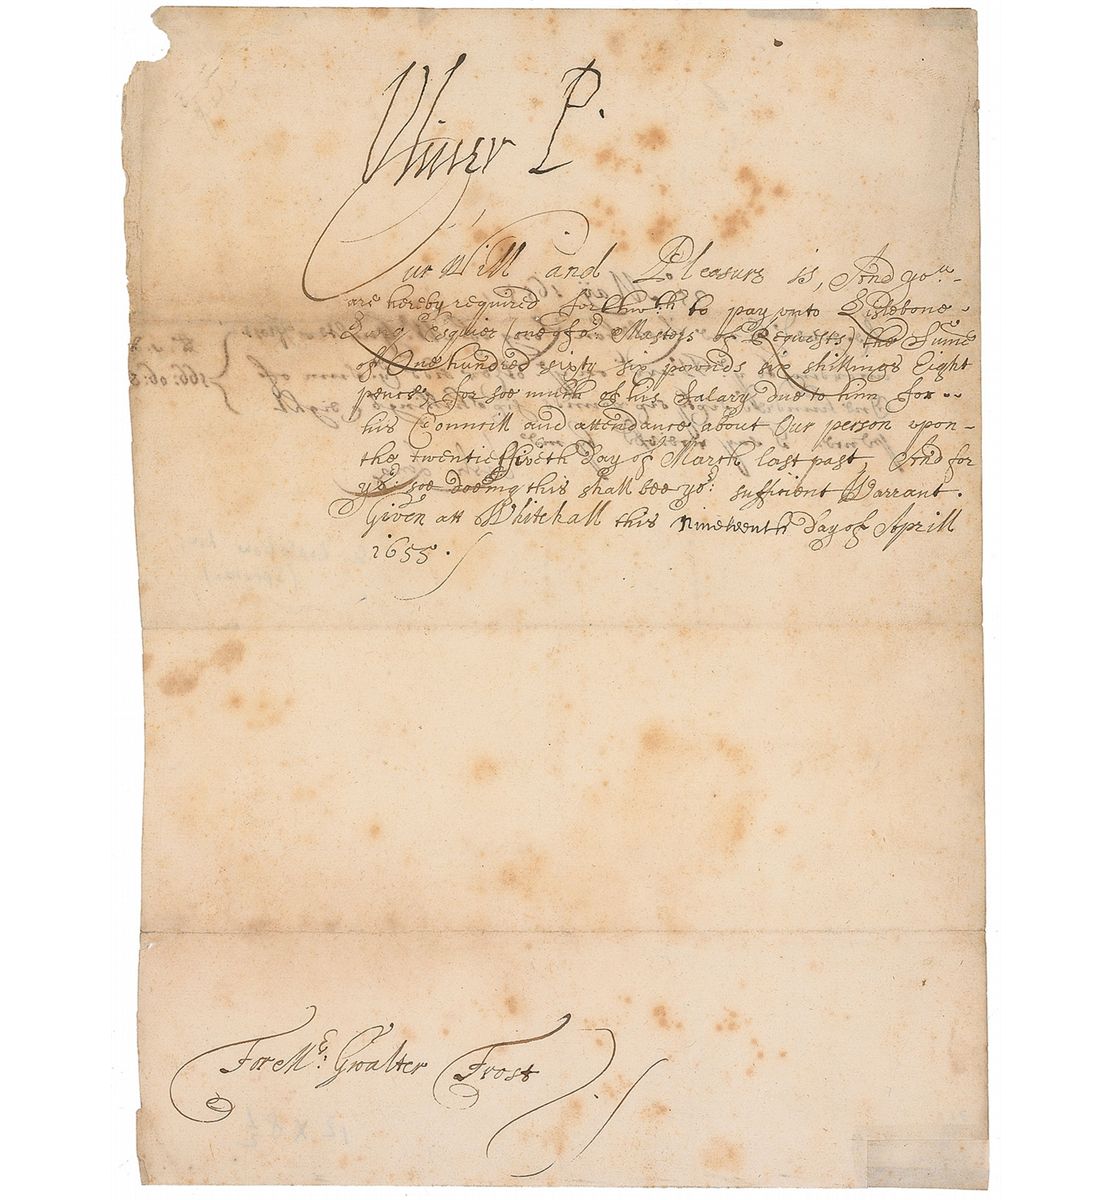 Oliver P.
Our Will and Pleasure is, And you
are hereby required forthwth to pay unto Lislebone
Long Esquier (one of or Masters of Requests) the Sume
of One hundred sixty six pownds six shillings Eight
pence, for soe much of his Salary due to him for
his Councill and attendance about Our person upon
the twentie fiveth Day of March last past, And for
yor soe doeing this shall bee yor sufficient Warrant.
Given att Whitehall this Nineteenth Day of Aprill
1655.
For Mr Gwalter Frost
12 x 8 1/2